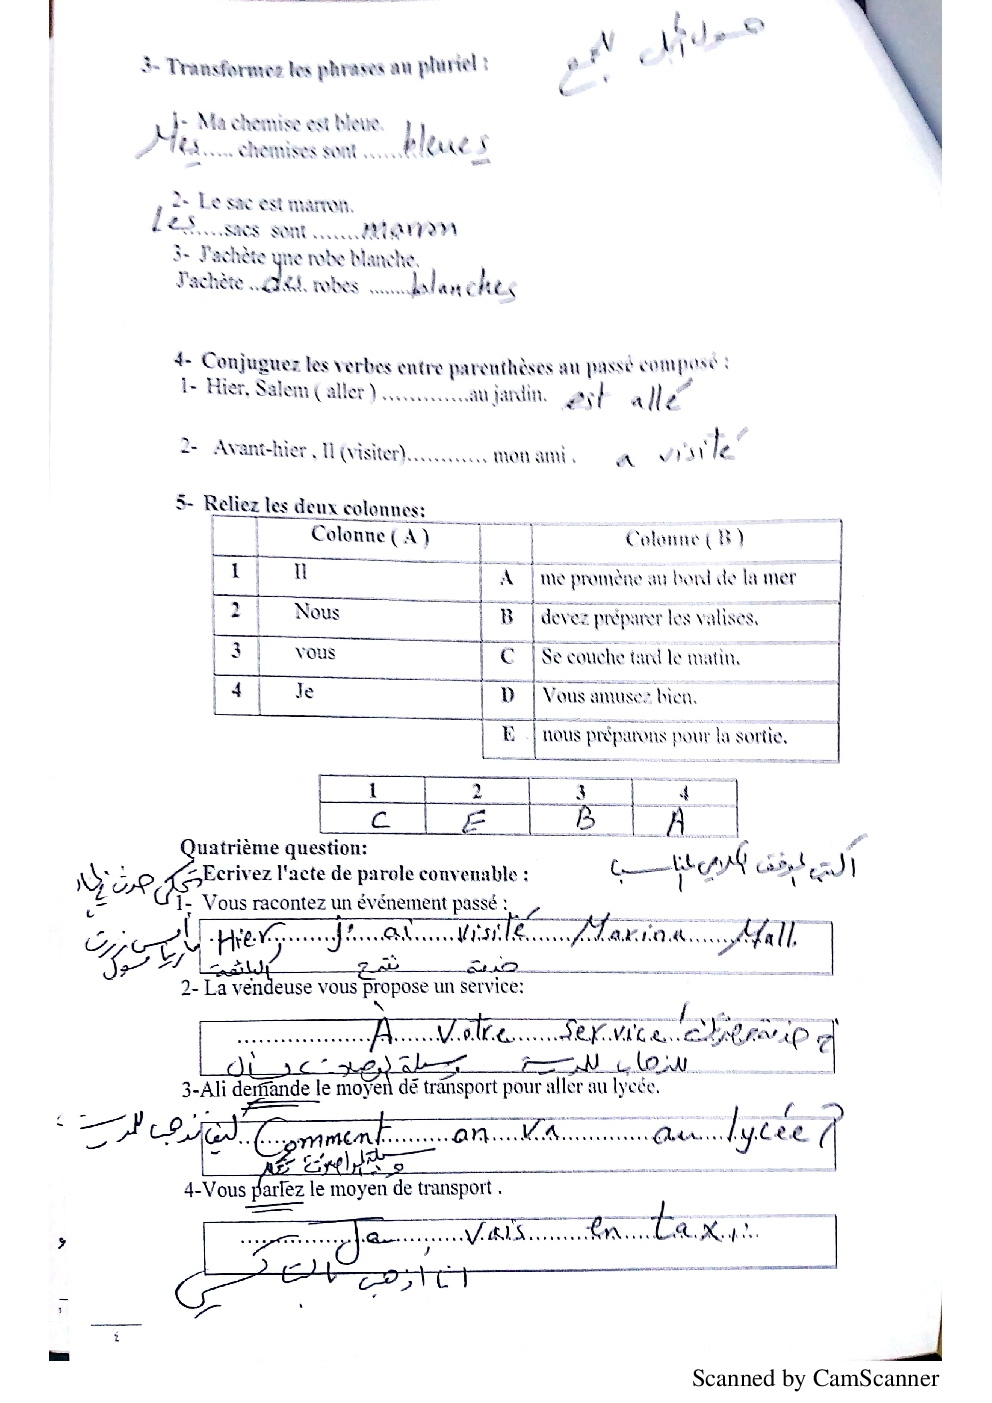 3- Transformez les phrases au pluriel :
1- Ma chemise est bleue.
Mes..... chemises sont ......bleues
2- Le sac est marron.
Les......sacs sont .......marron
3- J'achète une robe blanche.
J'achète ..des. robes .......blanches
4- Conjuguez les verbes entre parenthèses au passé composé :
1- Hier, Salem ( aller ) .............au jardin. est allé
2- Avant-hier , Il (visiter)............ mon ami . a visité
5- Reliez les deux colonnes:
Colonne ( A ) Colonne ( B )
1 Il A me promène au bord de la mer
2 Nous B devez préparer les valises.
3 vous C Se couche tard le matin.
4 Je D Vous amusez bien.
E nous préparons pour la sortie.
1 2 3 4
C E B A
Quatrième question:
Ecrivez l'acte de parole convenable :
1- Vous racontez un événement passé :
Hier, j'ai visité Marina Mall.
2- La vendeuse vous propose un service:
À votre service!
3-Ali demande le moyen de transport pour aller au lycée.
Comment on va au lycée?
4-Vous parlez le moyen de transport .
Je vais en taxi.
انا أذهب بالتاكسي
٤
Scanned by CamScanner